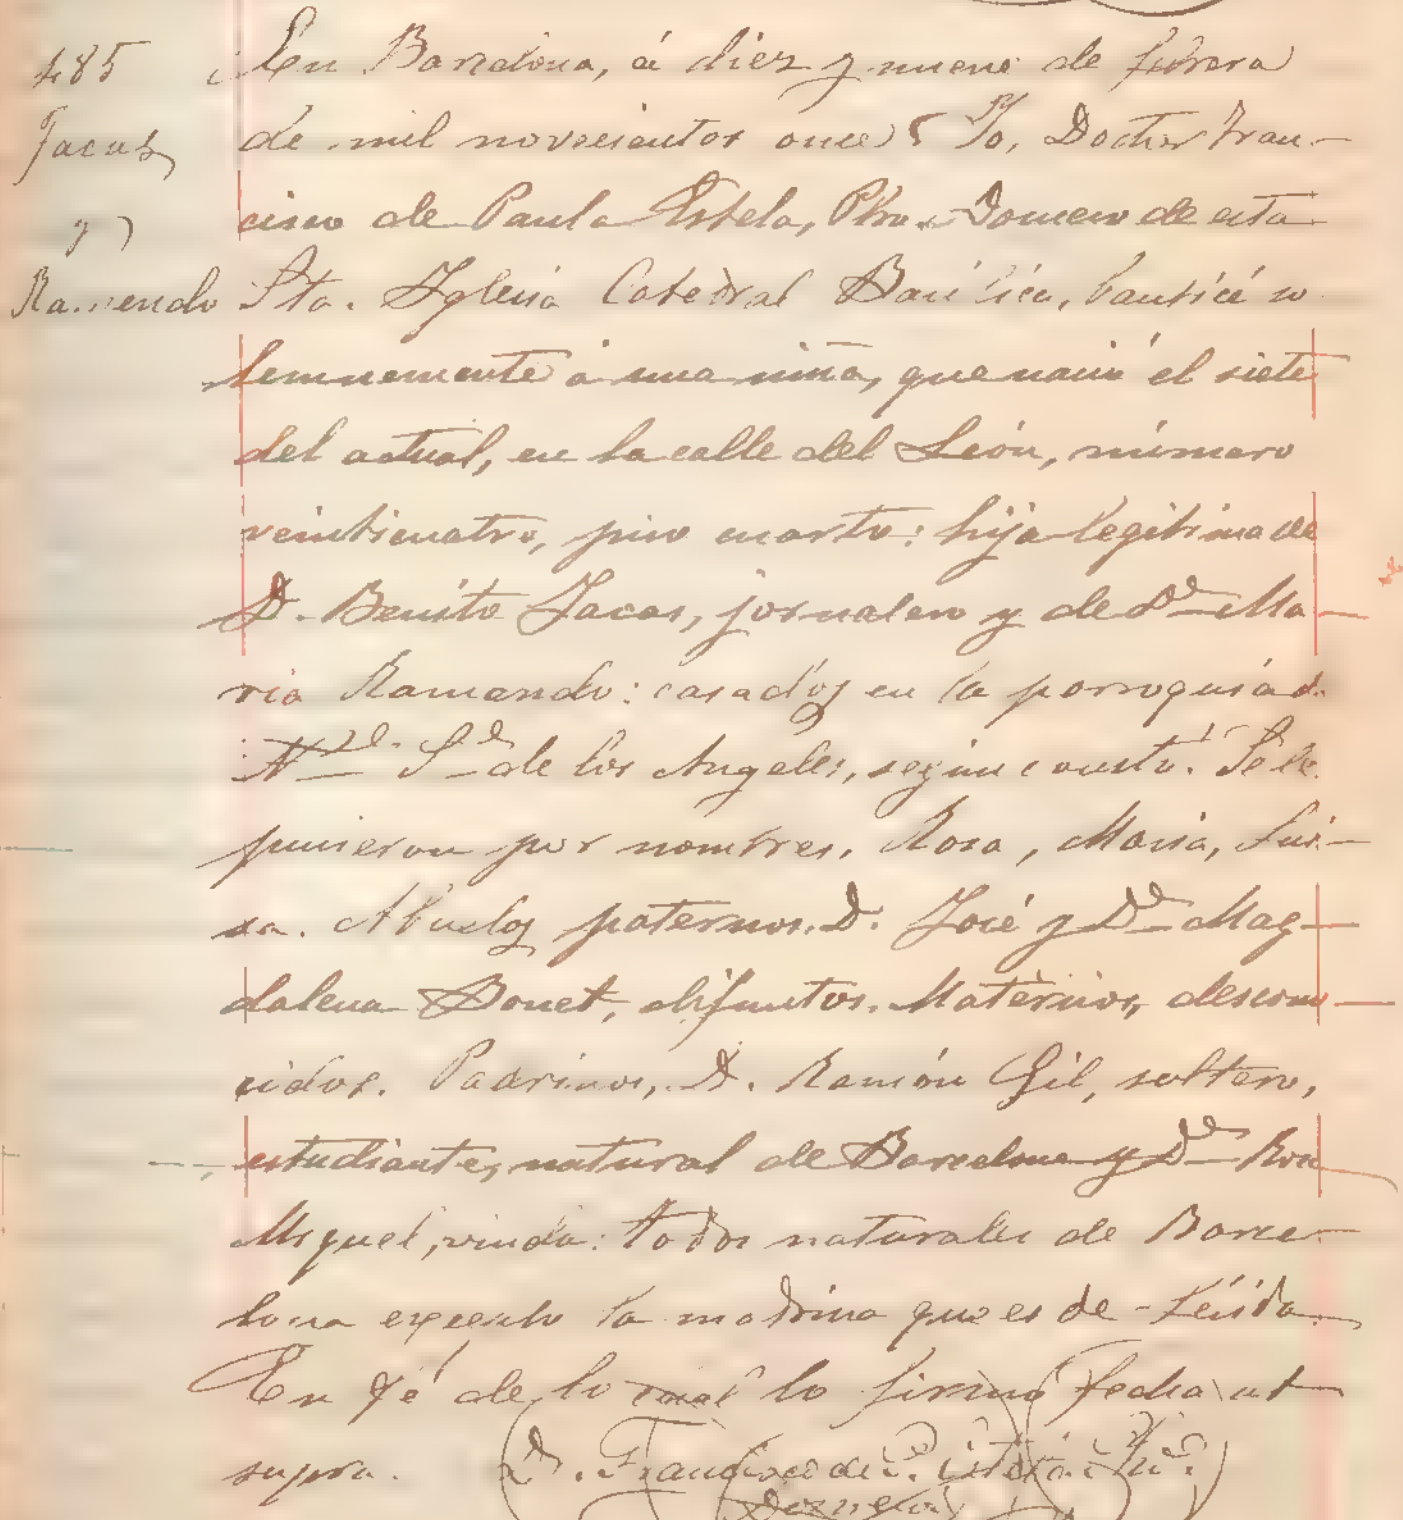 485
En Barcelona, á diez y nueve de febrero
Jacas
de mil novecientos once; Yo, Doctor Fran-
y
cisco de Paula Estela, Pbro. Domero de esta
Ramendo
Sta. Iglesia Catedral Basílica, bauticé so
lemnemente á una niña, que nació el siete
del actual, en la calle del León, número
veinticuatro, piso cuarto: hija legítima de
D. Benito Jacas, jornalero y de Dª Ma-
ria Ramendo: casados en la parroquia de
Nª Sª de los Angeles, según constó. Se le
pusieron por nombres, Rosa, Maria, Lui-
sa. Abuelos paternos, D. José y Dª Mag-
dalena Donet, difuntos. Maternos, descono-
cidos. Padrinos, D. Ramón Gil, soltero,
estudiante, natural de Barcelona y Dª Rosa
Miquel, viuda: todos naturales de Barce-
lona excepto la madrina que es de Lérida.
En fé de lo cual lo firmo fecha ut
supra. D. Francisco de P. Estela Pbro.
Domero